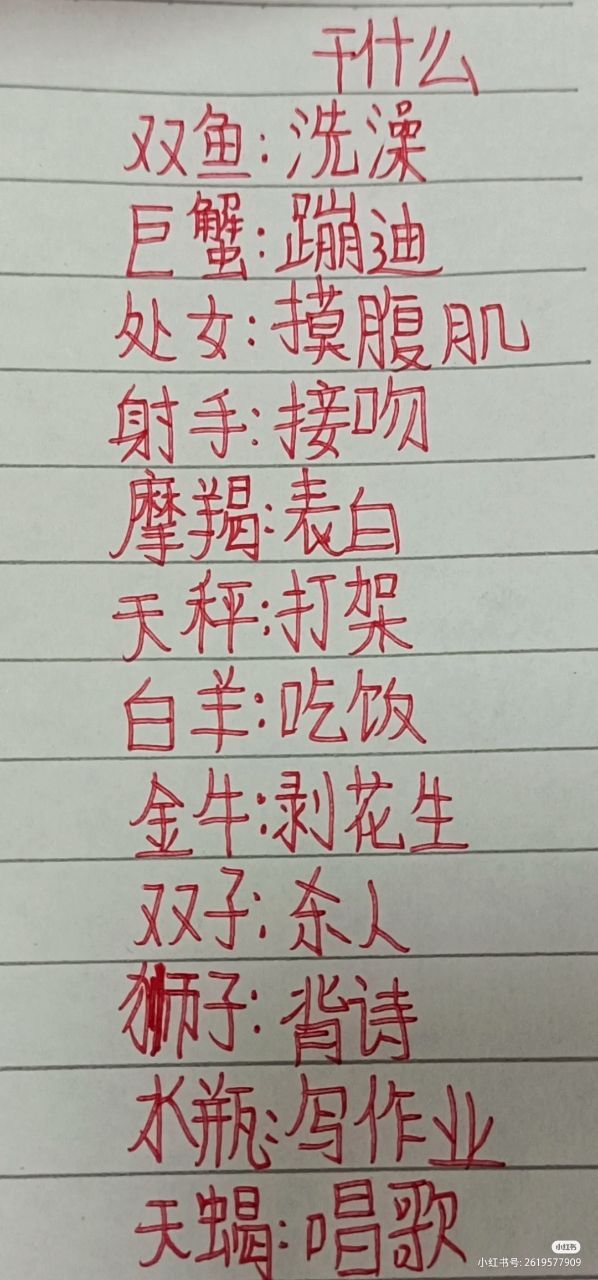 干什么
双鱼:洗澡
巨蟹:蹦迪
处女:摸腹肌
射手:接吻
摩羯:表白
天秤:打架
白羊:吃饭
金牛:剥花生
双子:杀人
狮子:背诗
水瓶:写作业
天蝎:唱歌
小红书
小红书号: 2619577909